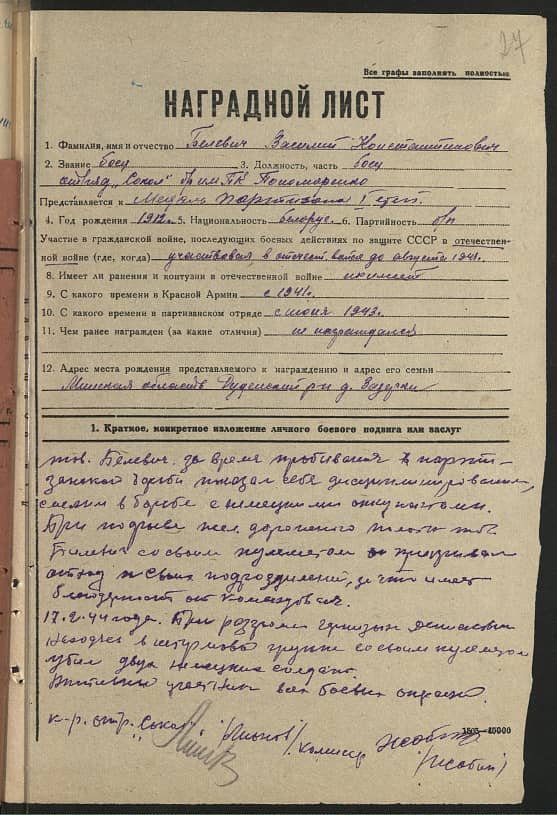 27
Все графы заполнять полностью
НАГРАДНОЙ ЛИСТ
1. Фамилия, имя и отчество Белевич Василий Константинович
2. Звание боец 3. Должность, часть боец
отряд „Сокол“ бр. им. ПК Пономаренко
Представляется к Медаль партизана I степ.
4. Год рождения 1912 5. Национальность белорус 6. Партийность б/п
Участие в гражданской войне, последующих боевых действиях по защите СССР в отечествен-
ной войне (где, когда) участвовал в отечест. войне до августа 1941.
8. Имеет ли ранения и контузии в отечественной войне не имеет
9. С какого времени в Красной Армии с 1941г.
10. С какого времени в партизанском отряде с июня 1943.
11. Чем ранее награжден (за какие отличия) не награждался
12. Адрес места рождения представляемого к награждению и адрес его семьи
Минская область Руденский р-н д.
1. Краткое, конкретное изложение личного боевого подвига или заслуг
тов. Белевич за время пребывания в парти-
занской борьбе показал себя дисциплинированным,
смелым в борьбе с немецкими оккупантами.
При подрыве жел. дорожного полотна тов.
Белевич со своим пулеметом прикрывал
отход своих подразделений, за что имеет
благодарность от командования.
17.2.44 года. При разгроме гарнизона
находясь в штурмовой группе со своим пулеметом
убил двух немецких солдат.
Активный участник всех боевых операций.
к-р. отр. „Сокол“ комиссар
1505—15000